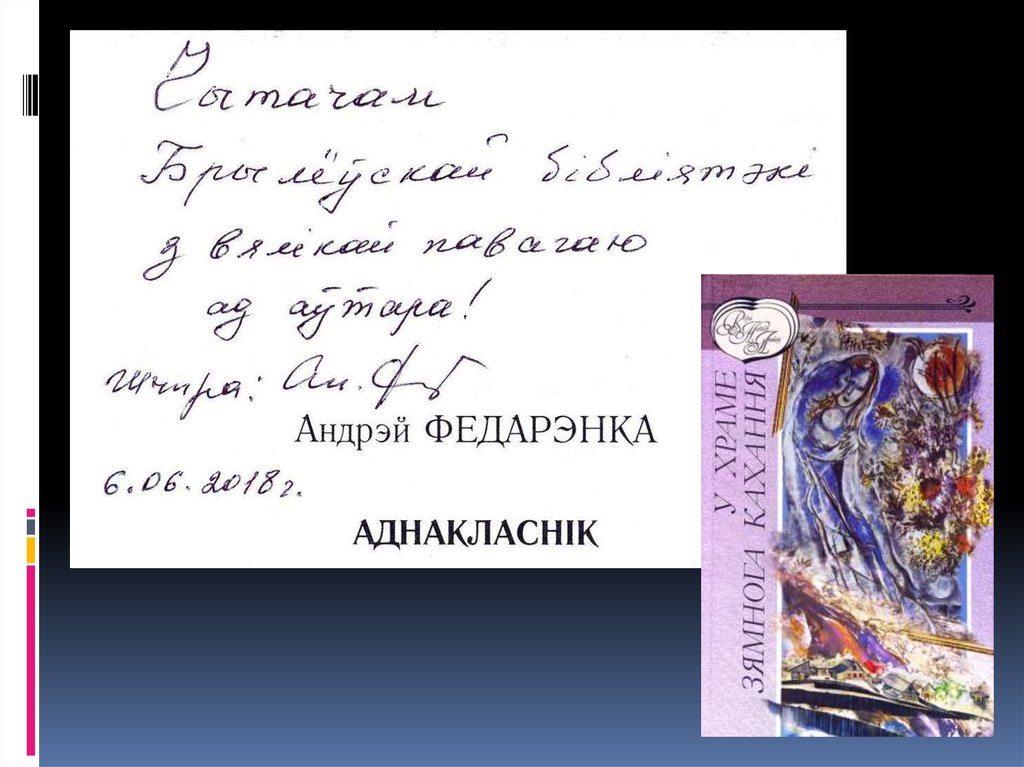 Чытачам
Брылёўскай бібліятэкі
з вялікай павагаю
ад аўтара!
Шчыра: Ан. Фед
Андрэй ФЕДАРЭНКА
6.06.2018г.
АДНАКЛАСНІК
У ХРАМЕ
ЗЯМНОГА КАХАННЯ